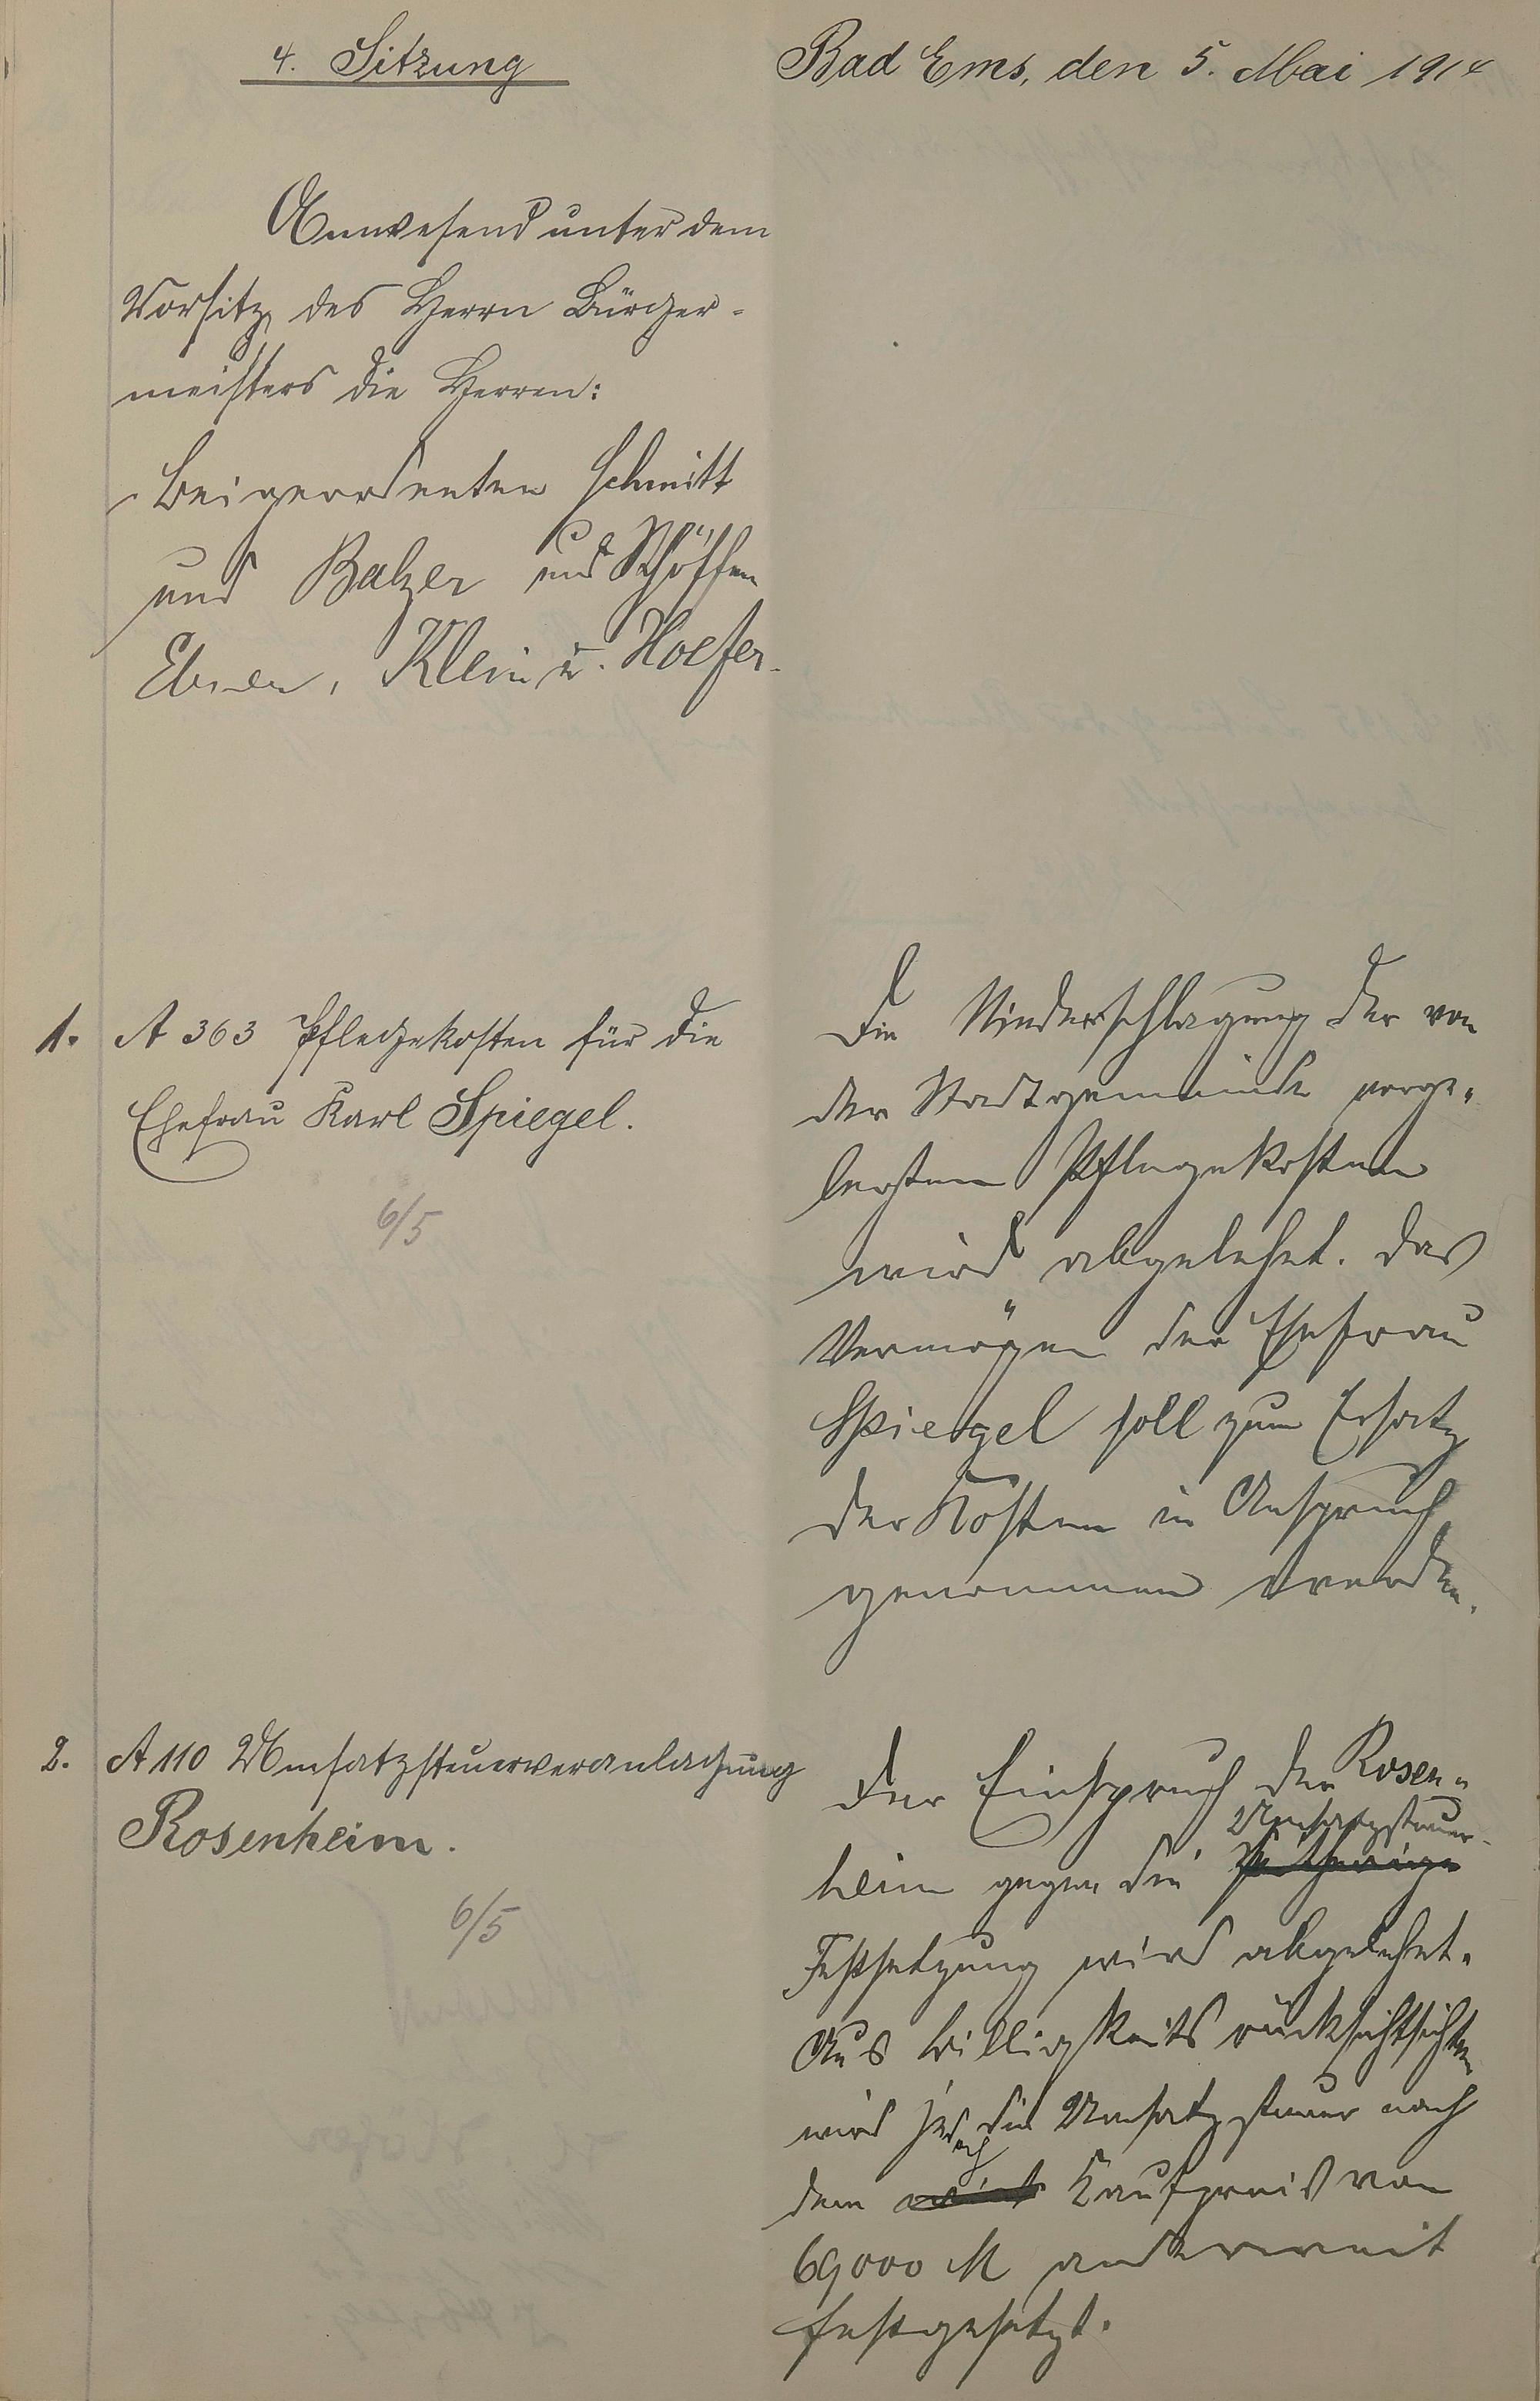 4. Sitzung
Bad Ems, den 5. Mai 1914
Anwesend unter dem
Vorsitz des Herrn Bürger-
meisters die Herren:
Beigeordneten Schmitt
und Balzer und Schöffen
Ebner, Klein u. Hoefer.
1. A 363 Pflegekosten für die
Ehefrau Karl Spiegel.
6/5
Die Niederschlagung der von
der Stadtgemeinde vorge-
legten Pflegekosten
wird abgelehnt. Das
Vermögen der Ehefrau
Spiegel soll zum Ersatz
der Kosten in Anspruch
genommen werden.
2. A 110 Umsatzsteuerveranlagung
Rosenheim.
6/5
Der Einspruch der Rosen-
Umsatzsteuer-
heim gegen die
Festsetzung wird abgelehnt.
Aus Billigkeits rücksichtsichten
wird jedoch die Umsatzsteuer nach
dem Kaufpreis von
69000 M anderweit
festgesetzt.